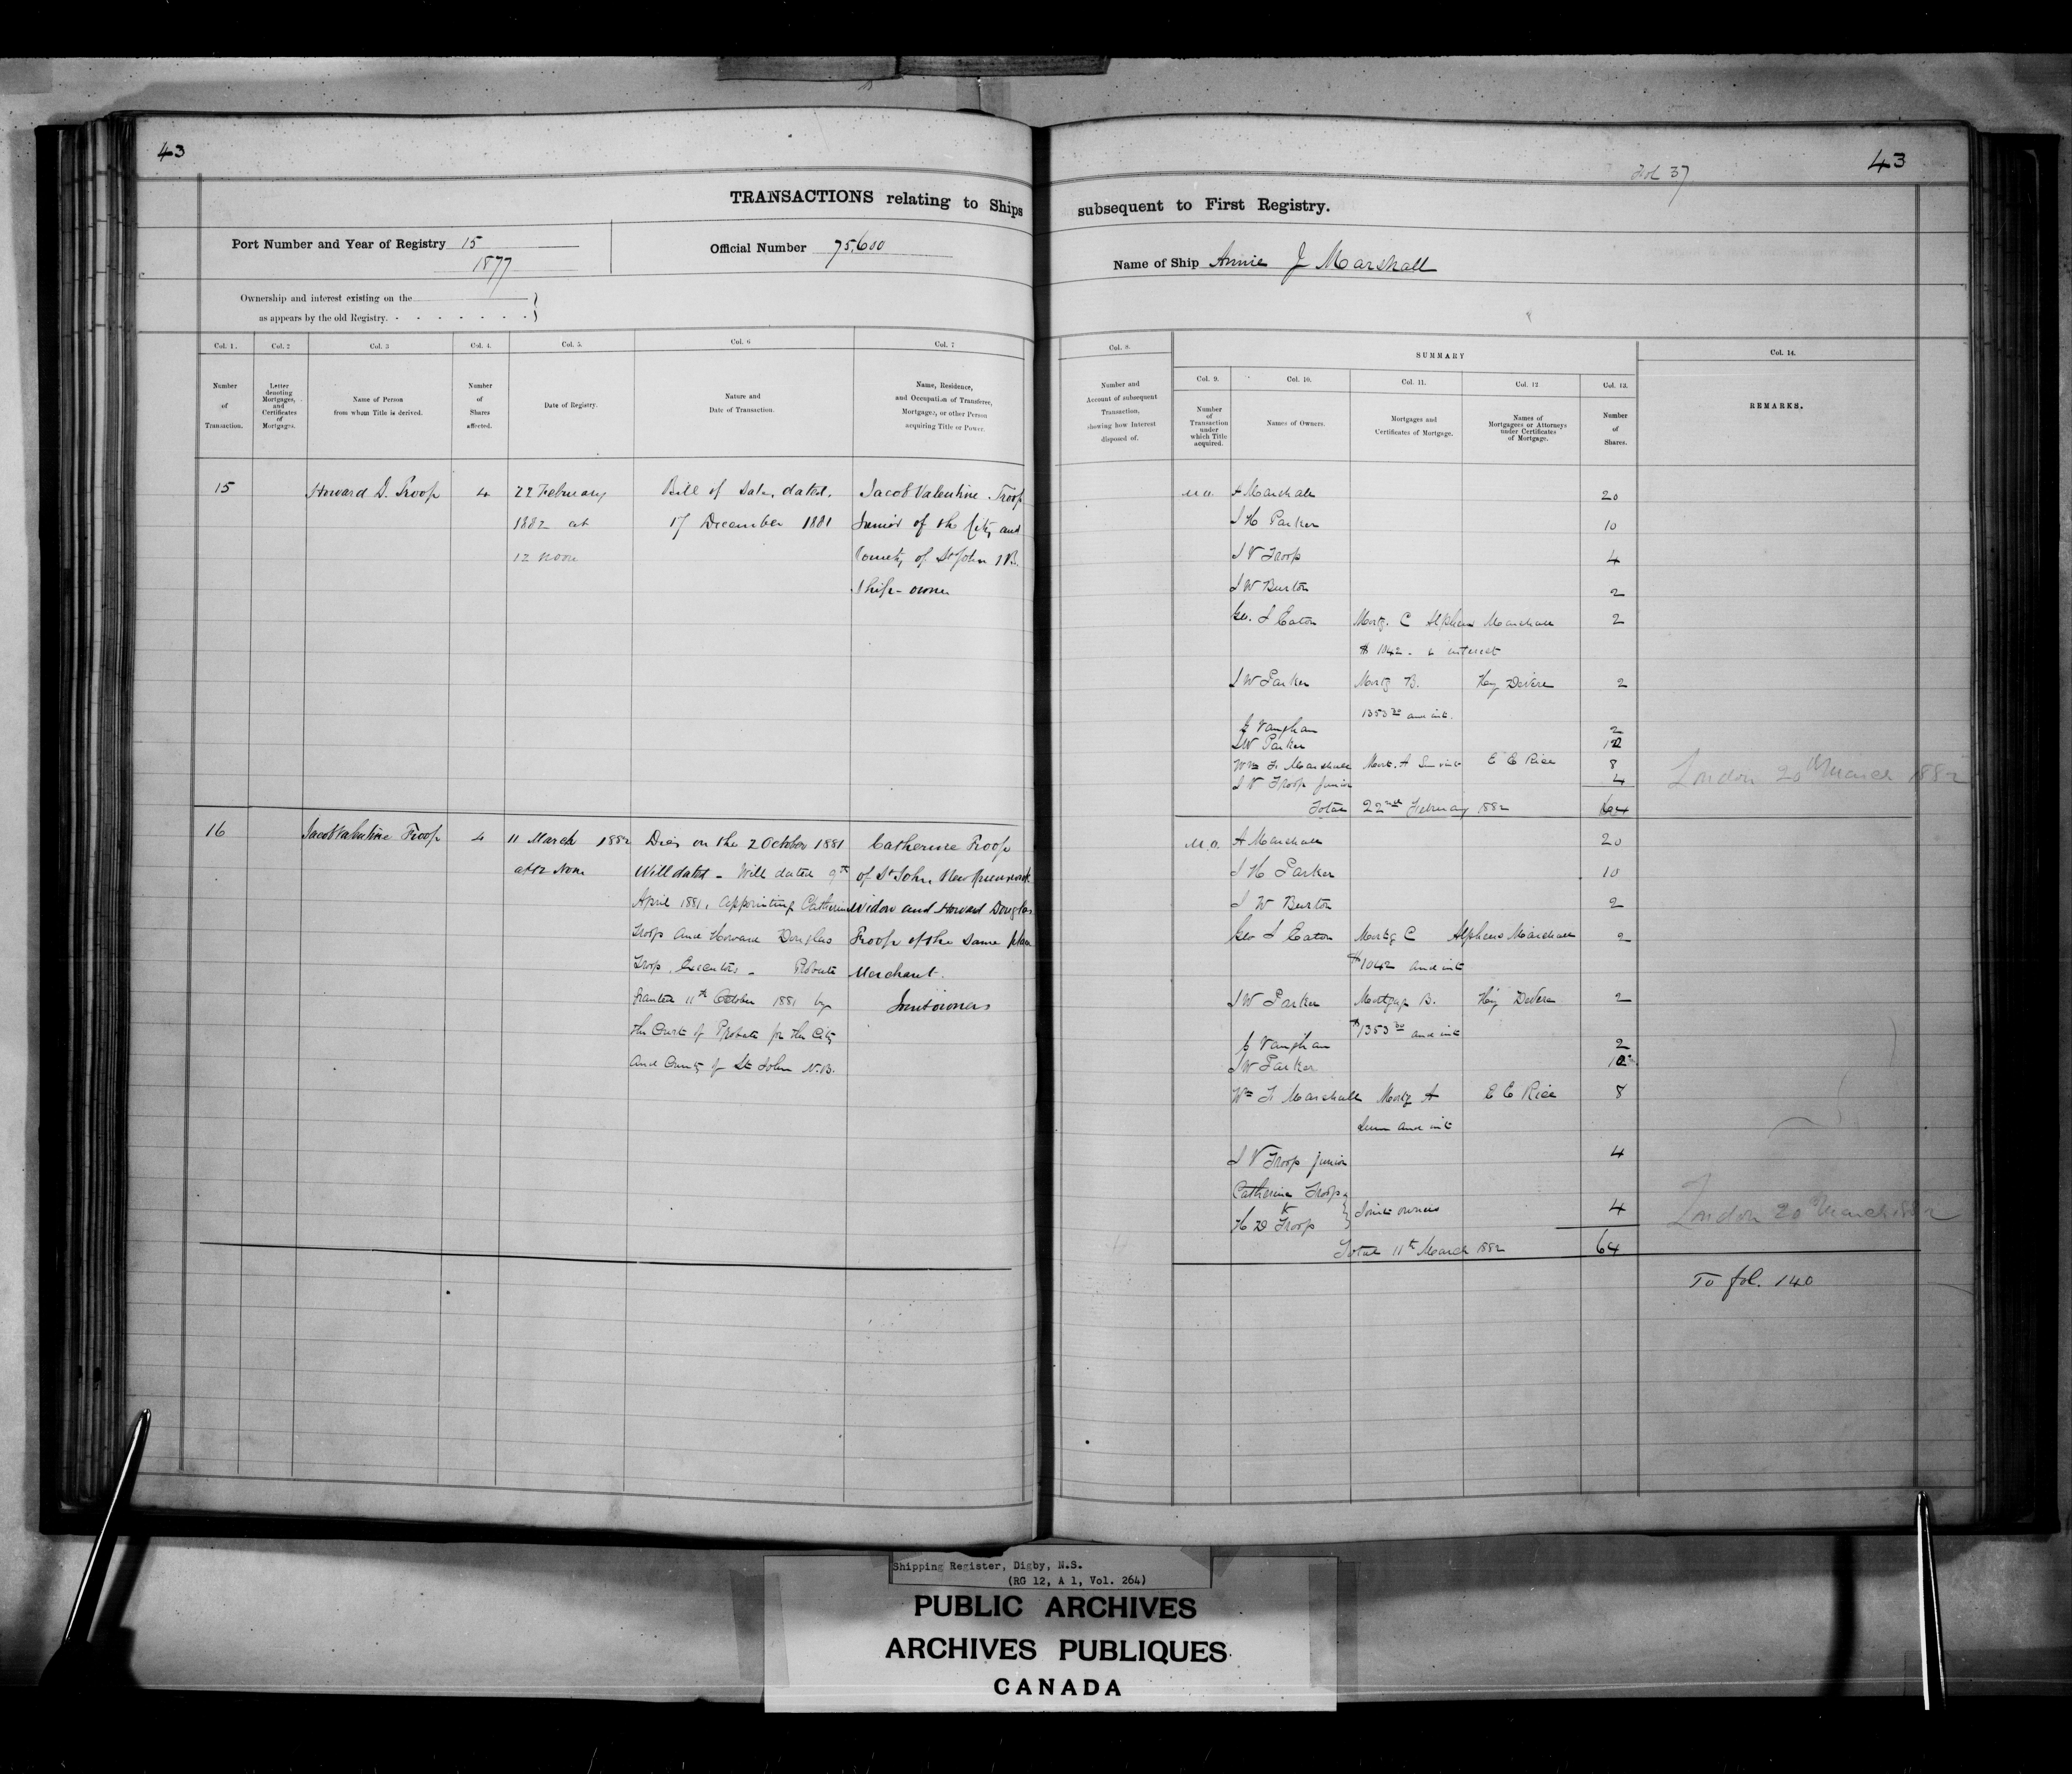 43
43
Fol 37
TRANSACTIONS relating to Ships subsequent to First Registry.
Port Number and Year of Registry 15
1877
Official Number 75,600
Name of Ship Annie J Marshall
Ownership and interest existing on the
as appears by the old Registry.
Col. 1.
Col. 2
Col. 3
Col. 4.
Col. 5.
Col. 6
Col. 7
Col. 8.
SUMMARY
Col. 14.
Col. 9.
Col. 10.
Col. 11.
Col. 12
Col. 13.
Number of Transaction.
Letter denoting Mortgages, and Certificates of Mortgages.
Name of Person from whom Title is derived.
Number of Shares affected.
Date of Registry.
Nature and Date of Transaction.
Name, Residence, and Occupation of Transferee, Mortgagee, or other Person acquiring Title or Power.
Number and Account of subsequent Transaction, showing how Interest disposed of.
Number of Transaction under which Title acquired.
Names of Owners.
Mortgages and Certificates of Mortgage.
Names of Mortgagees or Attorneys under Certificates of Mortgage.
Number of Shares.
REMARKS.
15
Howard D. Troop
4
22 February
1882 at
12 noon
Bill of Sale, dated.
17 December 1881
Jacob Valentine Troop
Junior of the City and
County of St John N.B.
Ship-owner
A Marshall 20
J H Parker 10
J V Troop 4
J W Burton 2
Geo. S Eaton Mortg. C Alpheus Marshall 2
$ 1042 - & interest
J W Parker Mortg B. Hy DeVere 2
1353 20 and int.
Vaughan 2
J W Parker
Wm Fr Marshall Mort. A Sum int E C Rice 8
J V Troop Junior 4
Total 22nd February 1882 64
London 20 March 1882
16
Jacob Valentine Troop
4
11 March 1882
at 12 Noon
Dies on the 2 October 1881
Will dated - Will dated 9th
April 1881, appointing Catherine
Troop and Howard Douglas
Troop, Executors - Probate
Granted 11th October 1881 by
the Court of Probate for the City
and County of St John N.B.
Catherine Troop
of St John, New Brunswick
Widow and Howard Douglas
Troop of the same place
Merchant.
Joint owners
A Marshall 20
J H Parker 10
J W Burton 2
Geo S Eaton Mortg C Alpheus Marshall 2
$1042 and int
J W Parker Mortgage B. Hy DeVere 2
$1353 20 and int
Vaughan 2
J W Parker
Wm Fr Marshall Mortg A E C Rice 8
Sum and int
J V Troop Junior 4
Catherine Troop
&
H D Troop } Joint owners 4
Total 11th March 1882 64
London 20 March 1882
To fol. 140
Shipping Register, Digby, N.S.
(RG 12, A 1, Vol. 264)
PUBLIC ARCHIVES
ARCHIVES PUBLIQUES
CANADA